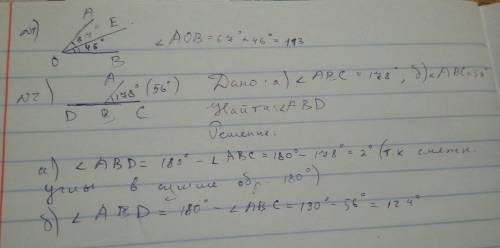 №1) A E
67°
46°
O B
∠AOB = 67° - 46° = 113
№2) A
178° (56°)
D B C
Дано: а) ∠ABC = 178°, б) ∠ABC = 56°
Найти: ∠ABD
Решение:
а) ∠ABD = 180° - ∠ABC = 180° - 178° = 2° (т.к смежн.
углы в сумме обр. 180°)
б) ∠ABD = 180° - ∠ABC = 190° - 56° = 124°